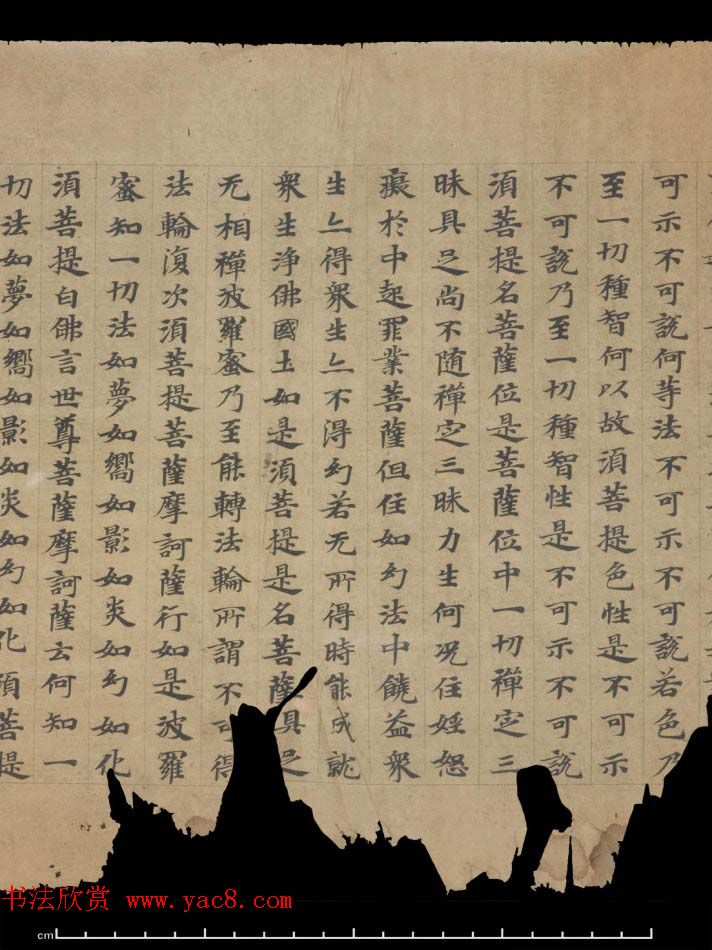 可示不可說何等法不可示不可說若色乃
至一切種智何以故湏菩提色性是不可示
不可說乃至一切種智性是不可示不可說
湏菩提名菩薩位是菩薩位中一切禪㝎三
昧具足尚不随禪㝎三昧力生何况住婬怒
癡於中起罪業菩薩但住如幻法中饒益衆
生亦得衆生亦不得幻若无所得時能成就
衆生淨佛國土如是湏菩提是名菩薩具足
无相禪波羅蜜乃至能轉法輪所謂不可得
法輪復次湏菩提菩薩摩訶薩行如是波羅
蜜知一切法如夢如嚮如影如炎如幻如化
湏菩提白佛言世尊菩薩摩訶薩云何知一
切法如夢如嚮如影如炎如幻如化湏菩提
书法欣赏 www.yac8.com
cm